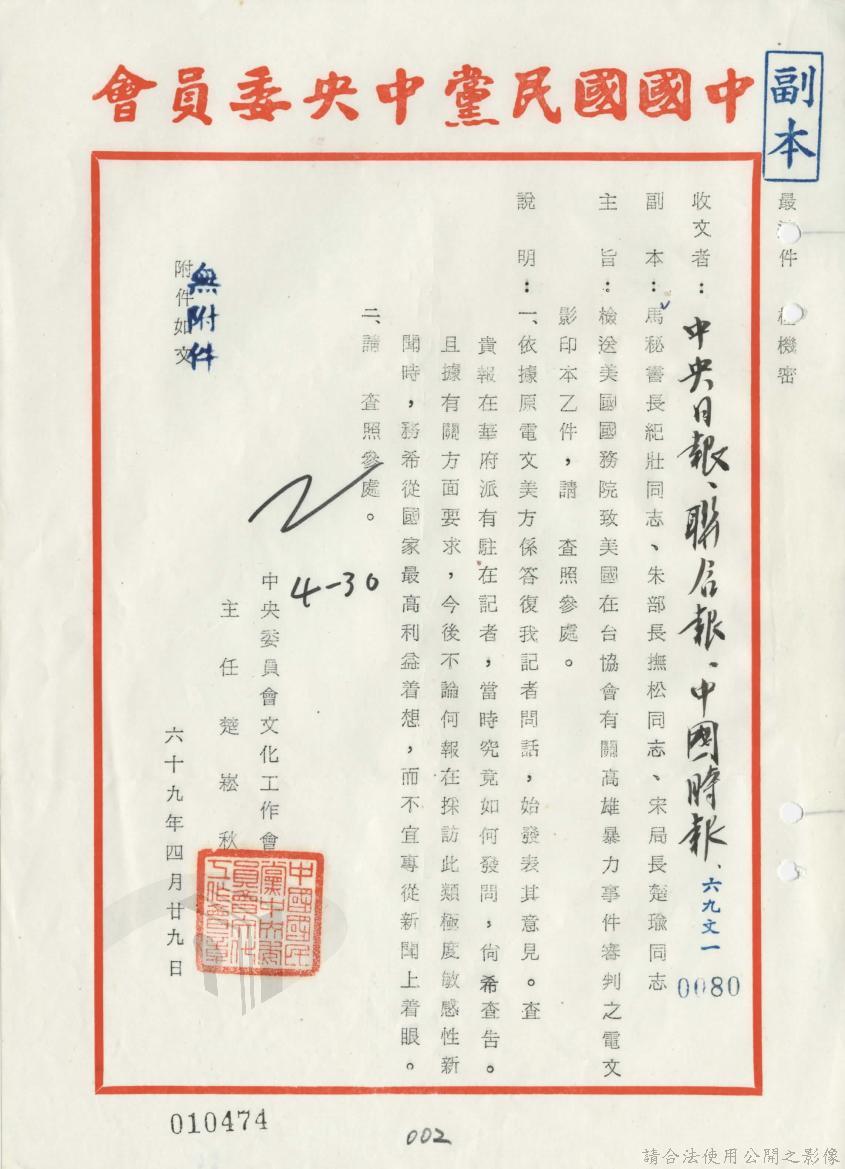 中國國民黨中央委員會
副本
最速件 極機密
收文者：中央日報、聯合報、中國時報、
六九文一
0080
副 本：馬秘書長紀壯同志、朱部長撫松同志、宋局長楚瑜同志
主 旨：檢送美國國務院致美國在台協會有關高雄暴力事件審判之電文
影印本乙件，請 查照參處。
說 明：一、依據原電文美方係答復我記者問話，始發表其意見。查
貴報在華府派有駐在記者，當時究竟如何發問，尙希查告。
且據有關方面要求，今後不論何報在採訪此類極度敏感性新
聞時，務希從國家最高利益着想，而不宜專從新聞上着眼。
二、請 查照參處。
附件如文
無附件
4-30
中央委員會文化工作會
主任 楚崧秋
中國國民黨中央委員會文化工作會章
六十九年四月廿九日
010474
002
請合法使用公開之影像